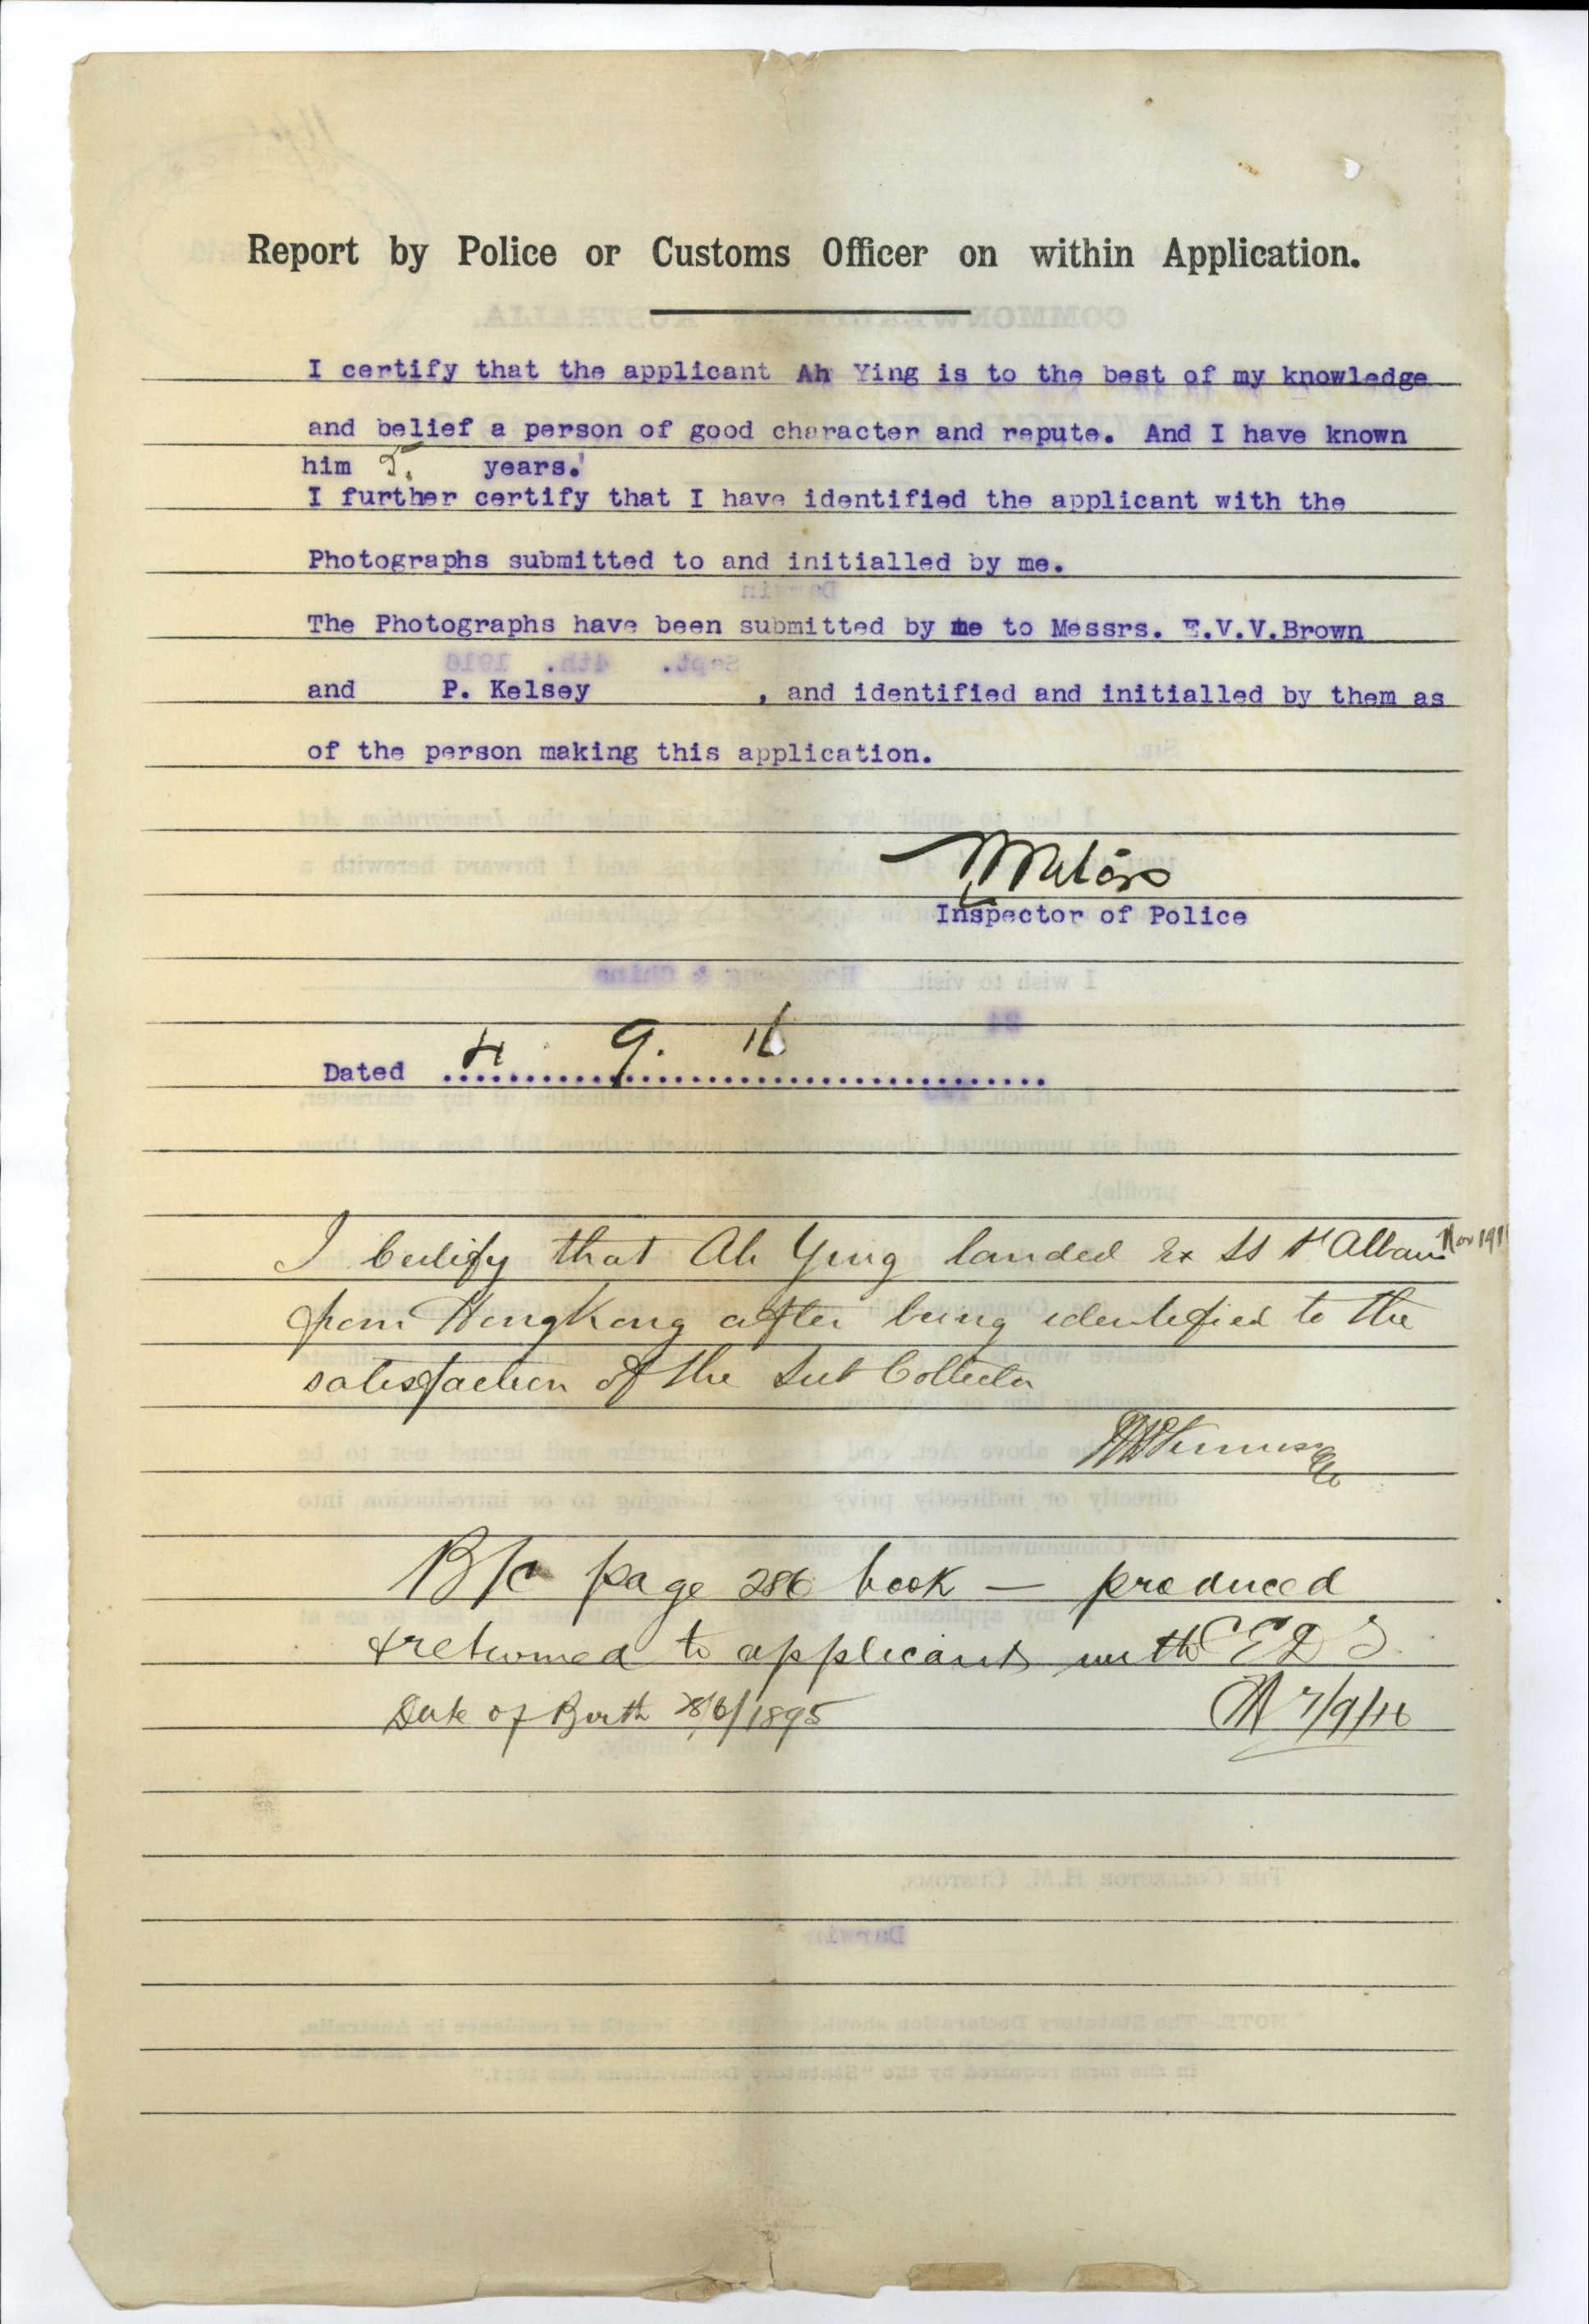 Report by Police or Customs Officer on within Application.
I certify that the applicant Ah Ying is to the best of my knowledge
and belief a person of good character and repute. And I have known
him 5. years.
I further certify that I have identified the applicant with the
Photographs submitted to and initialled by me.
The Photographs have been submitted by me to Messrs. E.V.V.Brown
and P. Kelsey , and identified and initialled by them as
of the person making this application.
Inspector of Police
Dated 4. 9. 16
I Certify that Ah Ying landed Ex SS St Albans Nov 191
from HongKong after being identified to the
satisfaction of the Sub Collector
B/c page 286 book — produced
& returned to applicant with CEDT
Date of Birth 28/6/1895
7/9/16